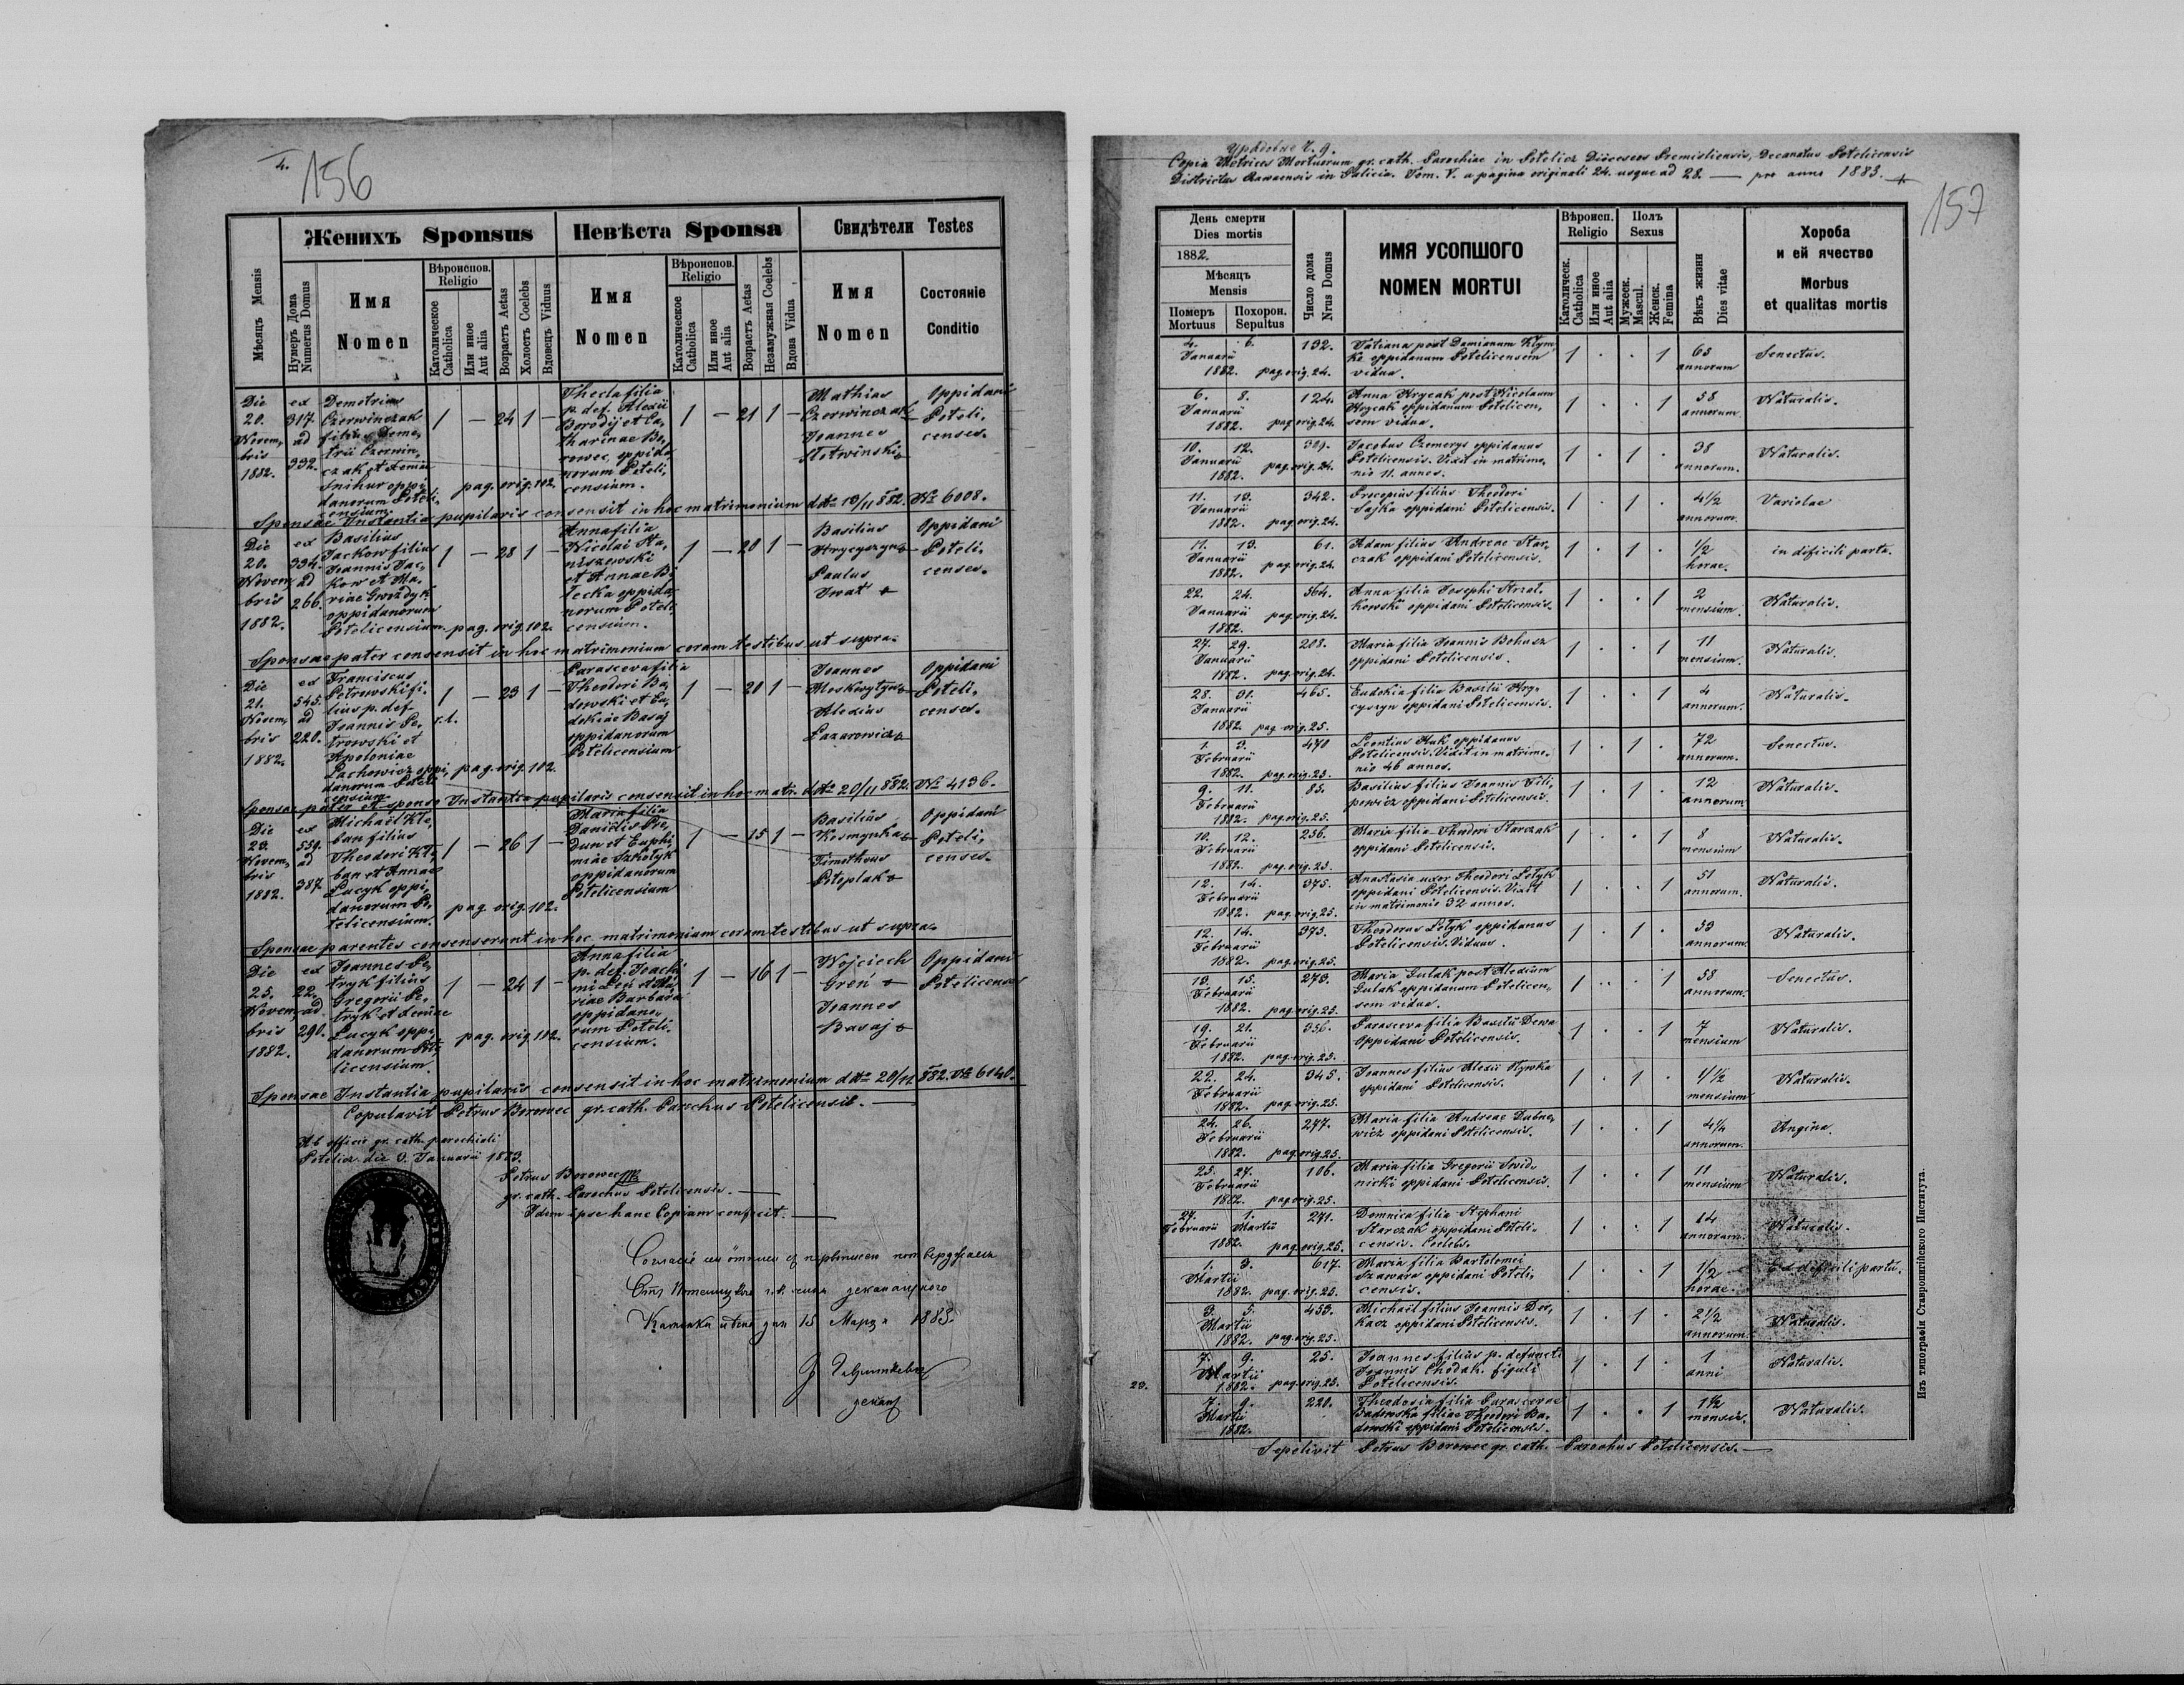 4. 156
Женихъ Sponsus
Невѣста Sponsa
Свидѣтели Testes
Мѣсяцъ Mensis
Нумеръ Дома
Numerus Domus
Имя
Nomen
Вѣроиспов.
Religio
Католическое
Catholica
Или иное
Aut alia
Возрастъ Aetas
Холостъ Coelebs
Вдовецъ Viduus
Имя
Nomen
Вѣроиспов.
Religio
Католическое
Catholica
Или иное
Aut alia
Возрастъ Aetas
Незамужная Coelebs
Вдова Vidua
Имя
Nomen
Состояніе
Conditio
Die 20. Novembris 1882.
ex 317. ad 332.
Demetrius
Czerwinczak
filius Deme,
trii Czerwin,
czak et Xeniae
Snihur oppi,
danorum Poteli,
censium.
1 — 24 1 —
pag. orig. 102.
Thecla filia
p. def. Alexii
Borodij et Ca,
tharinae Bo,
rowec, oppida,
norum Poteli,
censium.
1 — 21 1 —
Mathias
Czerwinczak
Joannes
Oppidani
Poteli,
censes.
Sponsae Instantia pupilaris consensit in hoc matrimonium dtto 19/11 882. № 6008.
Die 20. Novembris 1882.
ex 334. ad 266.
Basilius
Jackow filius
Joannis Jac,
kow et Ma,
riae Gwozdyk
oppidanorum
Potelicensium.
1 — 28 1 —
pag. orig. 102.
Anna filia
Nicolai Ha,
niszewski
et Annae Bi,
lecka oppida,
norum Poteli,
censium.
1 — 20 1 —
Basilius
Hrycyszyn
Paulus
Oppidani
Poteli,
censes.
Sponsae pater consensit in hoc matrimonium coram testibus ut supra.
Die 21. Novembris 1882.
ex 545. ad 220.
Franciscus
Petrowski fi,
lius p. def.
Joannis Pe,
trowski et
Apoloniae
Lachowicz oppi,
danorum Poteli,
censium.
1 — 23 1 —
r. l.
pag. orig. 102.
Parasceva filia
Theodori Ba,
dowski et Eu,
dokiae Basaj
oppidanorum
Potelicensium
1 — 20 1 —
Joannes
Moskwytyn
Alexius
Lazarowicz
Oppidani
Poteli,
censes.
Sponsae pater et sponso Instantia pupilaris consensit in hoc matr. dtto 20/11 882. № 4196.
Die 23. Novembris 1882.
ex 559. ad 387.
Michaël Kle,
ban filius
Theodori Kle,
ban et Annae
Lucyk oppi,
danorum Po,
telicensium.
1 — 26 1 —
pag. orig. 102.
Maria filia
Danielis Pre,
dun et Euphi,
miae Szkolyk
oppidanorum
Potelicensium
1 — 15 1 —
Basilius
Kosmynka
Timotheus
Potoplak
Oppidani
Poteli,
censes.
Sponsae parentes consenserunt in hoc matrimonium coram testibus ut supra.
Die 25. Novembris 1882.
ex 22. ad 290.
Joannes Pe,
tryk filius
Gregorii Pe,
tryk et Xeniae
Lucyk oppi,
danorum Pote,
licensium.
1 — 24 1 —
pag. orig. 102.
Anna filia
p. def. Joachi,
mi Leń et Ma,
riae Barbara
oppidano,
rum Poteli,
censium.
1 — 16 1 —
Wojciech
Greń
Joannes
Basaj
Oppidani
Potelicenses
Sponsae Instantia pupilaris consensit in hoc matrimonium dtto 20/11 882. № 6140.
Copulavit Petrus Borowec gr. cath. Parochus Potelicensis.
Ab officio gr. cath. parochiali
Potelicz die 3. Januarii 1883.
Petrus Borowec
gr. cath. Parochus Potelicensis.
Idem ipse hanc Copiam confecit.
15 Марта 1883.
деканъ
157
Copia Metrices Mortuorum gr. cath. Parochiae in Potelicz Dioeceseos Premisliensis, Decanatus Potelicensis
Districtus Rawaensis in Galicia. Tom. V. a pagina originali 24. usque ad 28. — pro anno 1883.
День смерти
Dies mortis
1882.
Мѣсяцъ
Mensis
Померъ
Mortuus
Похорон.
Sepultus
Число дома
Nrus Domus
ИМЯ УСОПШОГО
NOMEN MORTUI
Вѣроисп.
Religio
Католическ.
Catholica
Или иное
Aut alia
Полъ
Sexus
Мужеск.
Mascul.
Женск.
Femina
Вѣкъ жизни
Dies vitae
Хороба
и ей ячество
Morbus
et qualitas mortis
4. 6. 132. Tatiana post Damianum Klym,
Januarii ko oppidanum Potelicensem 1 . . 1 63 annorum Senectus.
1882. pag. orig. 24. vidua.
6. 8. 124. Anna Hrycak post Nicolaum
Januarii Hrycak oppidanum Potelicen, 1 . . 1 58 annorum. Naturalis.
1882. pag. orig. 24. sem vidua.
10. 12. 309. Jacobus Czemerys oppidanus
Januarii Potelicensis. Vixit in matrimo, 1 . 1 . 38 annorum. Naturalis.
1882. pag. orig. 24. nio 11. annos.
11. 13. 342. Procopius filius Theodori
Januarii Sajka oppidani Potelicensis. 1 . 1 . 4 1/2 annorum. Variolae
1882. pag. orig. 24.
11. 13. 61. Adam filius Andreae Star,
Januarii czak oppidani Potelicensis. 1 . 1 . 1/2 horae. in dificili partu.
1882. pag. orig. 24.
22. 24. 564. Anna filia Josephi Strzel,
Januarii kowski oppidani Potelicensis. 1 . . 1 2 mensium. Naturalis.
1882. pag. orig. 24.
27. 29. 208. Maria filia Joannis Bohusz
Januarii oppidani Potelicensis. 1 . . 1 11 mensium. Naturalis.
1882. pag. orig. 24.
28. 31. 465. Eudokia filia Basilii Hry,
Januarii cyszyn oppidani Potelicensis. 1 . . 1 4 annorum. Naturalis.
1882. pag. orig. 25.
1. 3. 470 Leontius Huk oppidanus
Februarii Potelicensis. Vixit in matrimo, 1 . 1 . 72 annorum. Senectus.
1882. pag. orig. 25. nio 46 annos.
9. 11. 85. Basilius filius Joannis Fili,
Februarii powicz oppidani Potelicensis. 1 . 1 . 12 annorum Naturalis.
1882. pag. orig. 25.
10. 12. 256. Maria filia Theodori Starczak
Februarii oppidani Potelicensis. 1 . . 1 8 mensium Naturalis.
1882. pag. orig. 25.
12. 14. 375. Anastasia uxor Theodori Lotyk
Februarii oppidani Potelicensis. Vixit 1 . . 1 51 annorum. Naturalis.
1882. pag. orig. 25. in matrimonio 32 annos.
12. 14. 373. Theodorus Lotyk oppidanus
Februarii Potelicensis. Viduus. 1 . 1 . 53 annorum. Naturalis.
1882. pag. orig. 25.
13. 15. 273. Maria Gulak post Alexium
Februarii Gulak oppidanum Potelicen, 1 . . 1 58 annorum. Senectus.
1882. pag. orig. 25. sem vidua.
19. 21. 356. Parasceva filia Basilii Dewa
Februarii oppidani Potelicensis. 1 . . 1 7 mensium Naturalis.
1882. pag. orig. 25.
22. 24. 345. Joannes filius Alexii Hywka
Februarii oppidani Potelicensis. 1 . 1 . 4 1/2 mensium Naturalis.
1882. pag. orig. 25.
24. 26. 277. Maria filia Andreae Dubne,
Februarii wicz oppidani Potelicensis. 1 . . 1 4 1/4 annorum. Angina.
1882. pag. orig. 25.
25. 27. 106. Maria filia Gregorii Swid,
Februarii nicki oppidani Potelicensis. 1 . . 1 11 mensium Naturalis.
1882. pag. orig. 25.
27. 1. 271. Domnica filia Stephani
Februarii Martii Starczak oppidani Poteli, 1 . . 1 14 annorum. Naturalis.
1882. pag. orig. 25. censis. Coelebs.
1. 3. 617. Maria filia Bartolomei
Martii Szawara oppidani Poteli, 1 . . 1 1/2 horae. Ex dificili partu.
1882. pag. orig. 25. censis.
3. 5. 453. Michaël filius Joannis Der,
Martii kacz oppidani Potelicensis. 1 . 1 . 2 1/2 annorum. Naturalis.
1882. pag. orig. 25.
7. 9. 25. Joannes filius p. defuncti
Martii Joannis Chodak figuli 1 . 1 . 1 anni Naturalis.
23. 1882. pag. orig. 25. Potelicensis.
7. 9. 220. Theodosia filia Parascevae
Martii Badowska filiae Theodori Ba, 1 . . 1 1 1/2 mensis. Naturalis.
1882. dowski oppidani Potelicensis.
Sepelivit Petrus Borowec gr. cath. Parochus Potelicensis.
Изъ типографіи Ставропигійского Института.